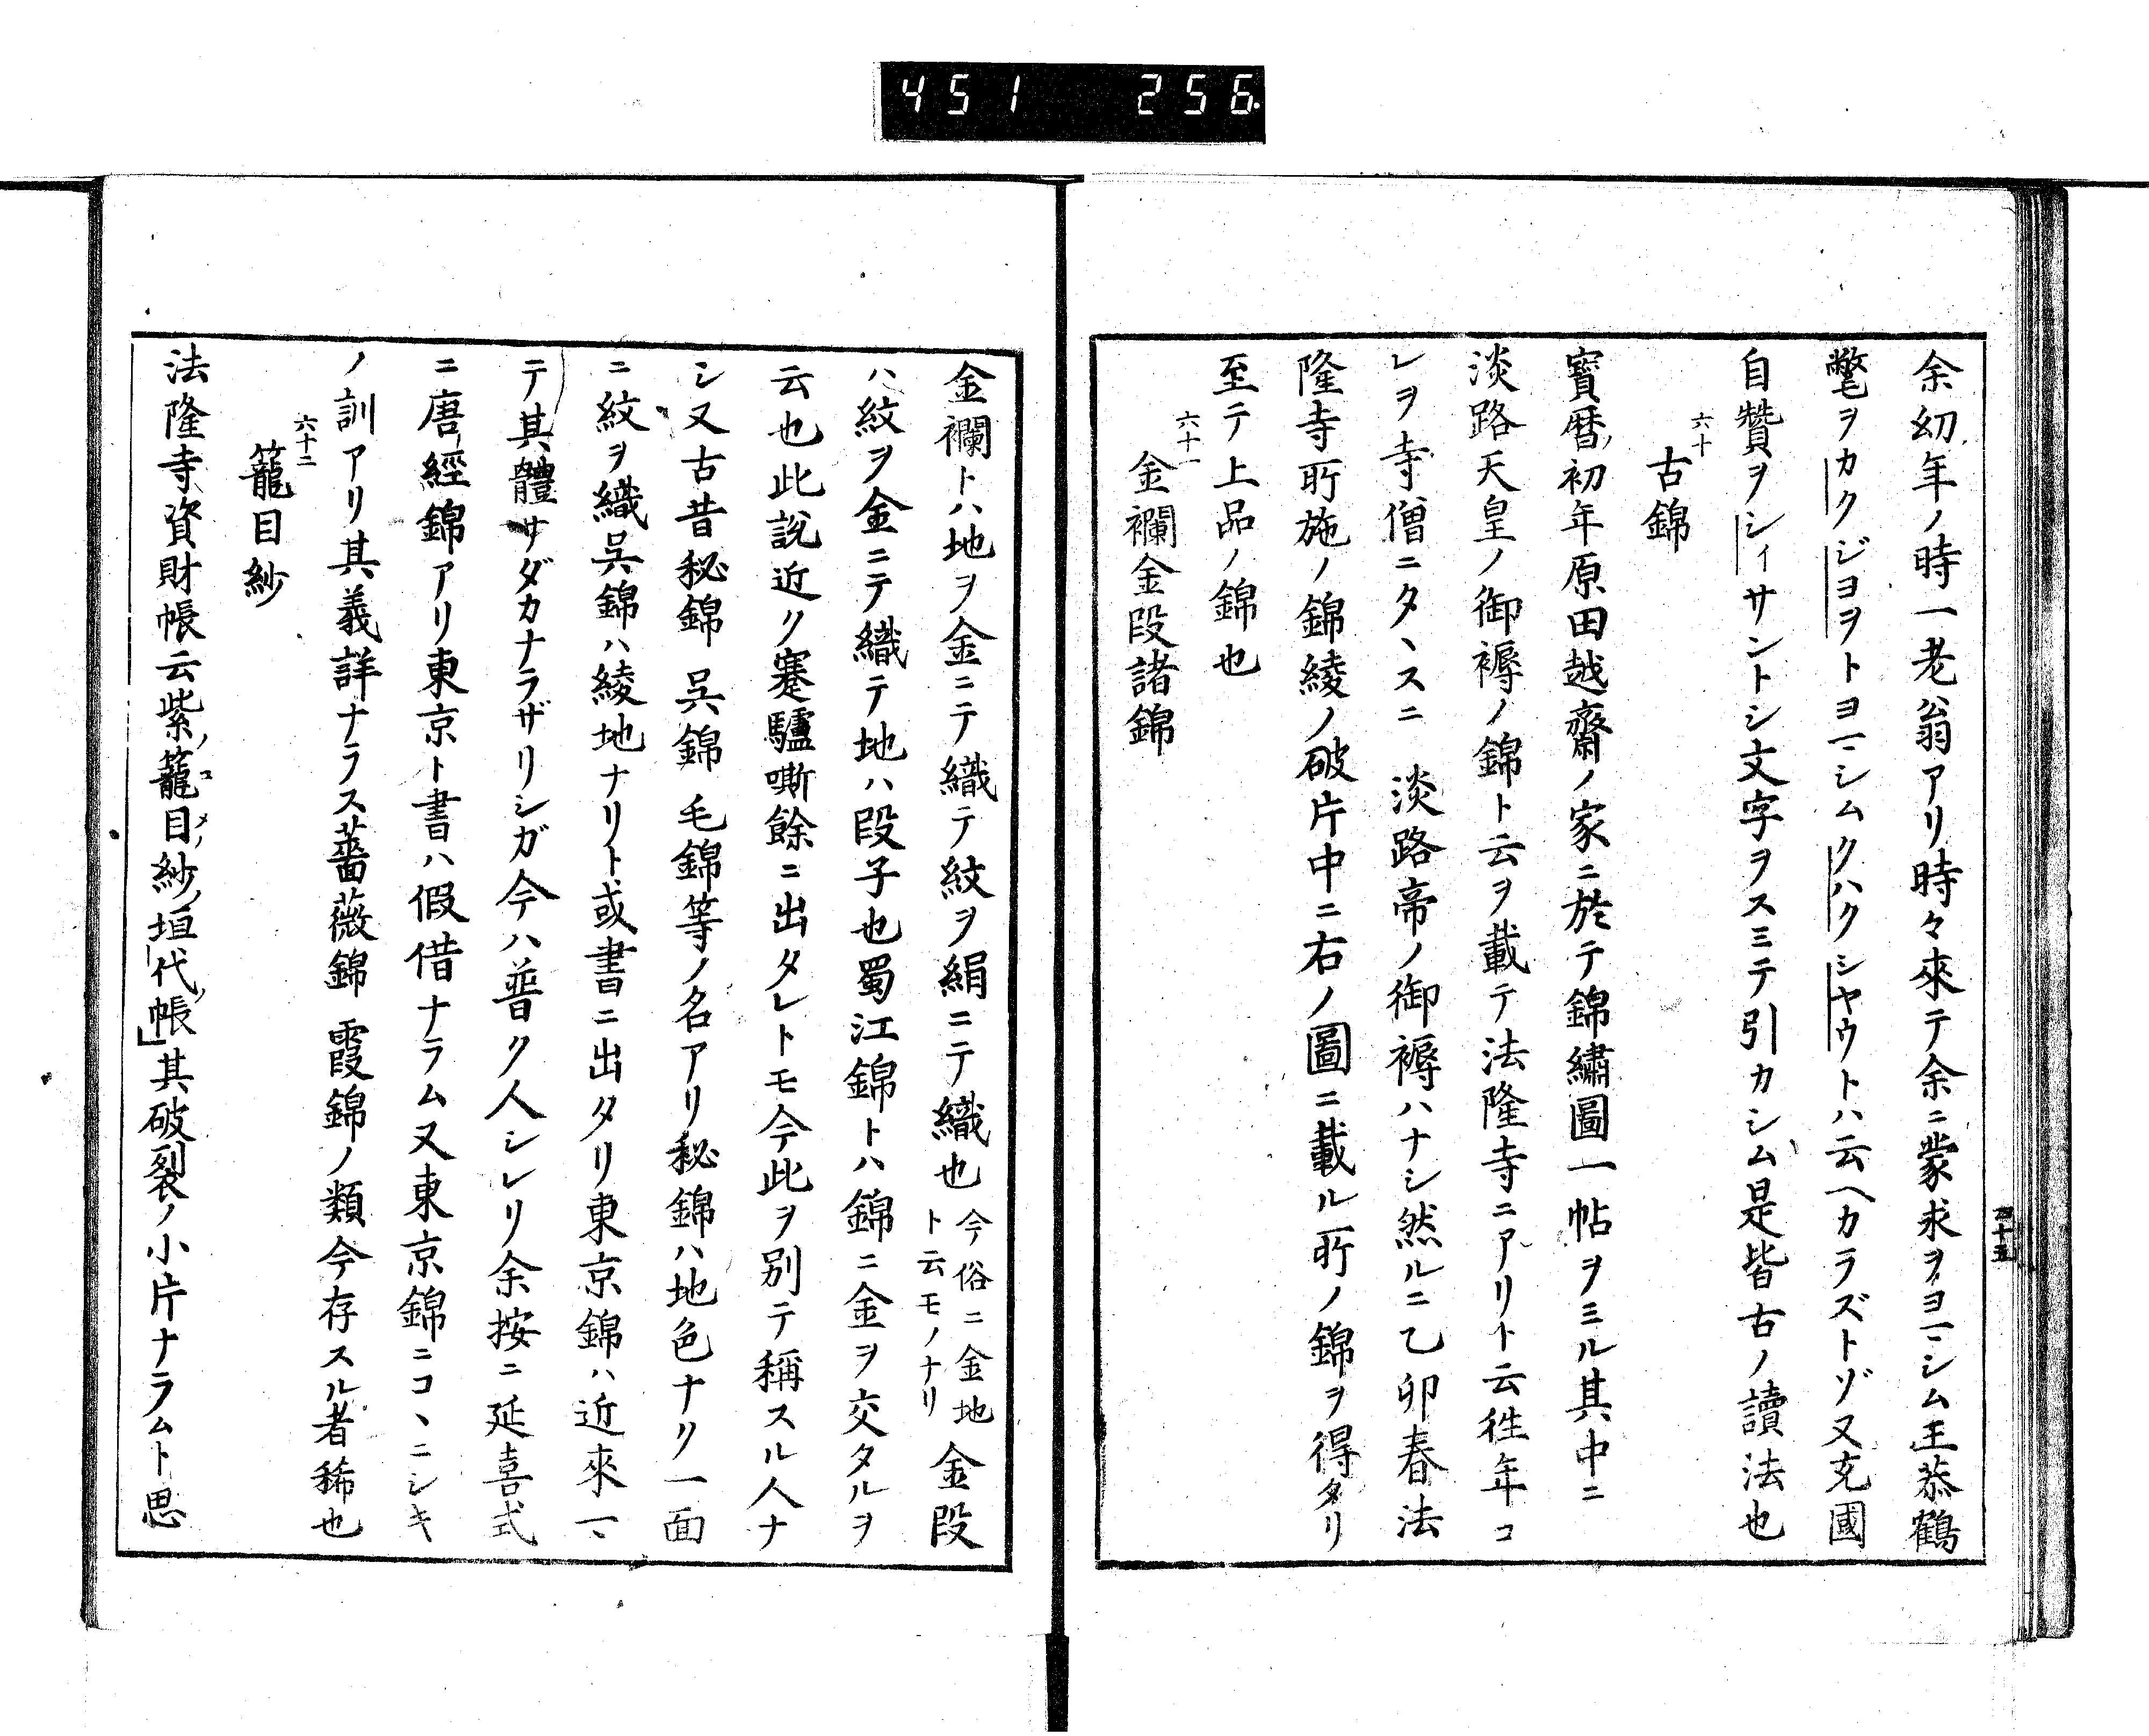 451 256
四十五
余幼年ノ時一老翁アリ時々來テ余ニ蒙求ヲヨマシム王恭鶴
氅ヲカクジヨヲトヨマシムクハクシヤウトハ云ヘカラズトゾ又充國
自贊ヲシイサントシ文字ヲスミテ引カシム是皆古ノ讀法也
六十
古錦
寳暦ノ初年原田越齋ノ家ニ於テ錦繡圖一帖ヲミル其中ニ
淡路天皇ノ御褥ノ錦ト云ヲ載テ法隆寺ニアリト云徃年コ
レヲ寺僧ニタヽスニ 淡路帝ノ御褥ハナシ然ルニ乙卯春法
隆寺所施ノ錦綾ノ破片中ニ右ノ圖ニ載ル所ノ錦ヲ得タリ
至テ上品ノ錦也
六十一
金襴金段諸錦
金襴トハ地ヲ金ニテ織テ紋ヲ絹ニテ織也 今俗ニ金地ト云モノナリ 金段
ハ紋ヲ金ニテ織テ地ハ段子也蜀江錦トハ錦ニ金ヲ交タルヲ
云也此說近ク蹇驢嘶餘ニ出タレトモ今此ヲ別テ稱スル人ナ
シ又古昔秘錦 呉錦 毛錦等ノ名アリ秘錦ハ地色ナリ一面
ニ紋ヲ織呉錦ハ綾地ナリト或書ニ出タリ東京錦ハ近來マヽ
テ其體サダカナラザリシガ今ハ普ク人シレリ余按ニ延喜式
ニ唐經錦アリ東京ト書ハ假借ナラム又東京錦ニコヽニシキ
ノ訓アリ其義詳ナラス薔薇錦 霞錦ノ類今存スル者稀也
六十二
籠目紗
法隆寺資財帳云紫ノ籠コ目メノ紗ノ垣代ノ帳」其破裂ノ小片ナラムト思